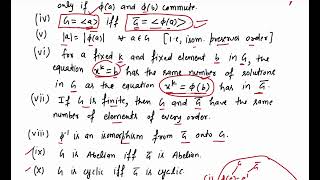 only if φ(a) and φ(b) commute.
(iv) G = <a> iff G̅ = <φ(a)>
(v) |a| = |φ(a)| ∀ a∈G [i.e, isom. preserves order]
(vi) for a fixed k and fixed element b in G, the
equation x^k = b has the same number of solutions
in G as the equation x^k = φ(b) has in G̅.
(vii) If G is finite, then G and G̅ have the same
number of elements of every order.
(viii) φ⁻¹ is an isomorphism from G̅ onto G.
(ix) G is Abelian iff G̅ is Abelian.
(x) G is cyclic iff G̅ is cyclic
G G̅